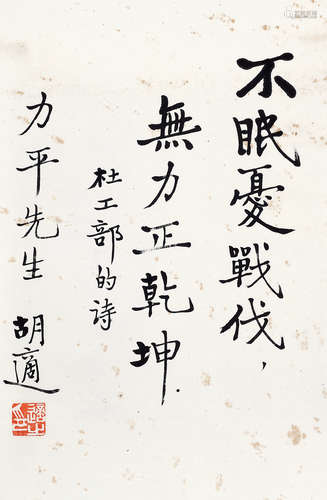 不眠憂戰伐，
無力正乾坤．
杜工部的诗
力平先生
胡適